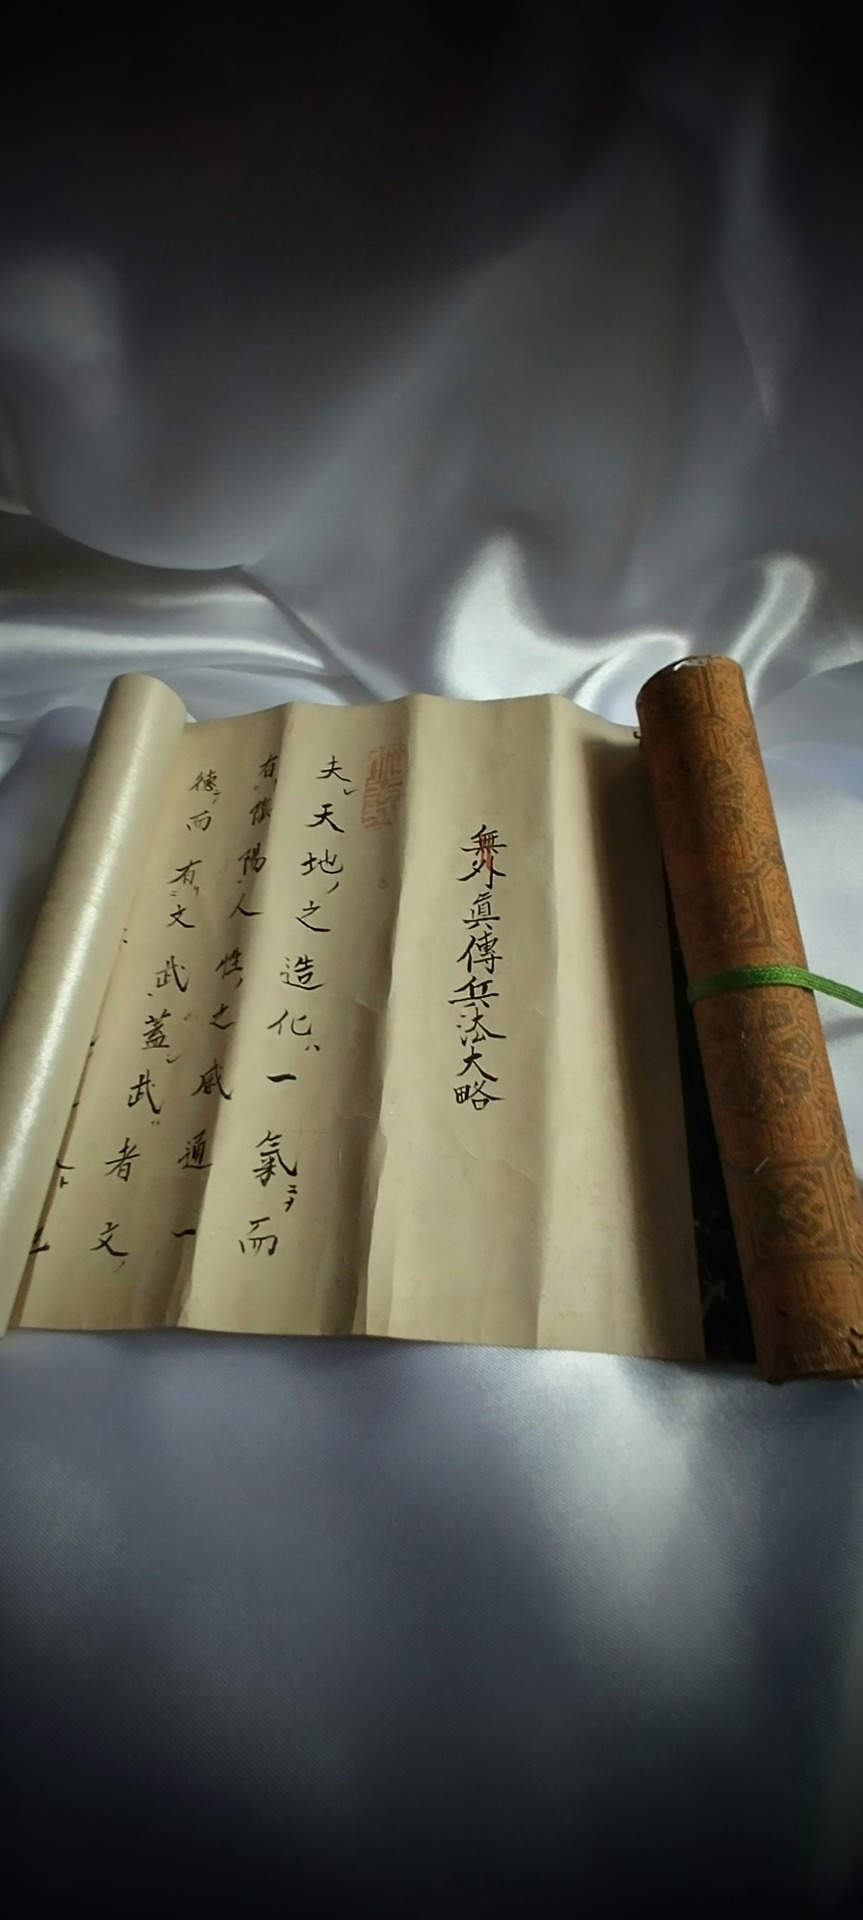 無外眞傳兵法大略
夫レ天地ノ之造化ハ一氣ニ〆而
有陰陽人性之感通一
德ニ而有文武蓋シ武者文